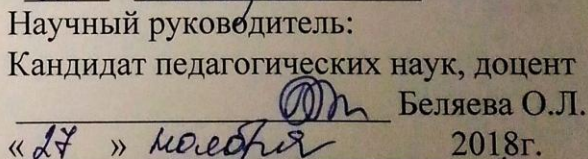 Научный руководитель:
Кандидат педагогических наук, доцент
Беляева О.Л.
« 27 » ноября 2018г.